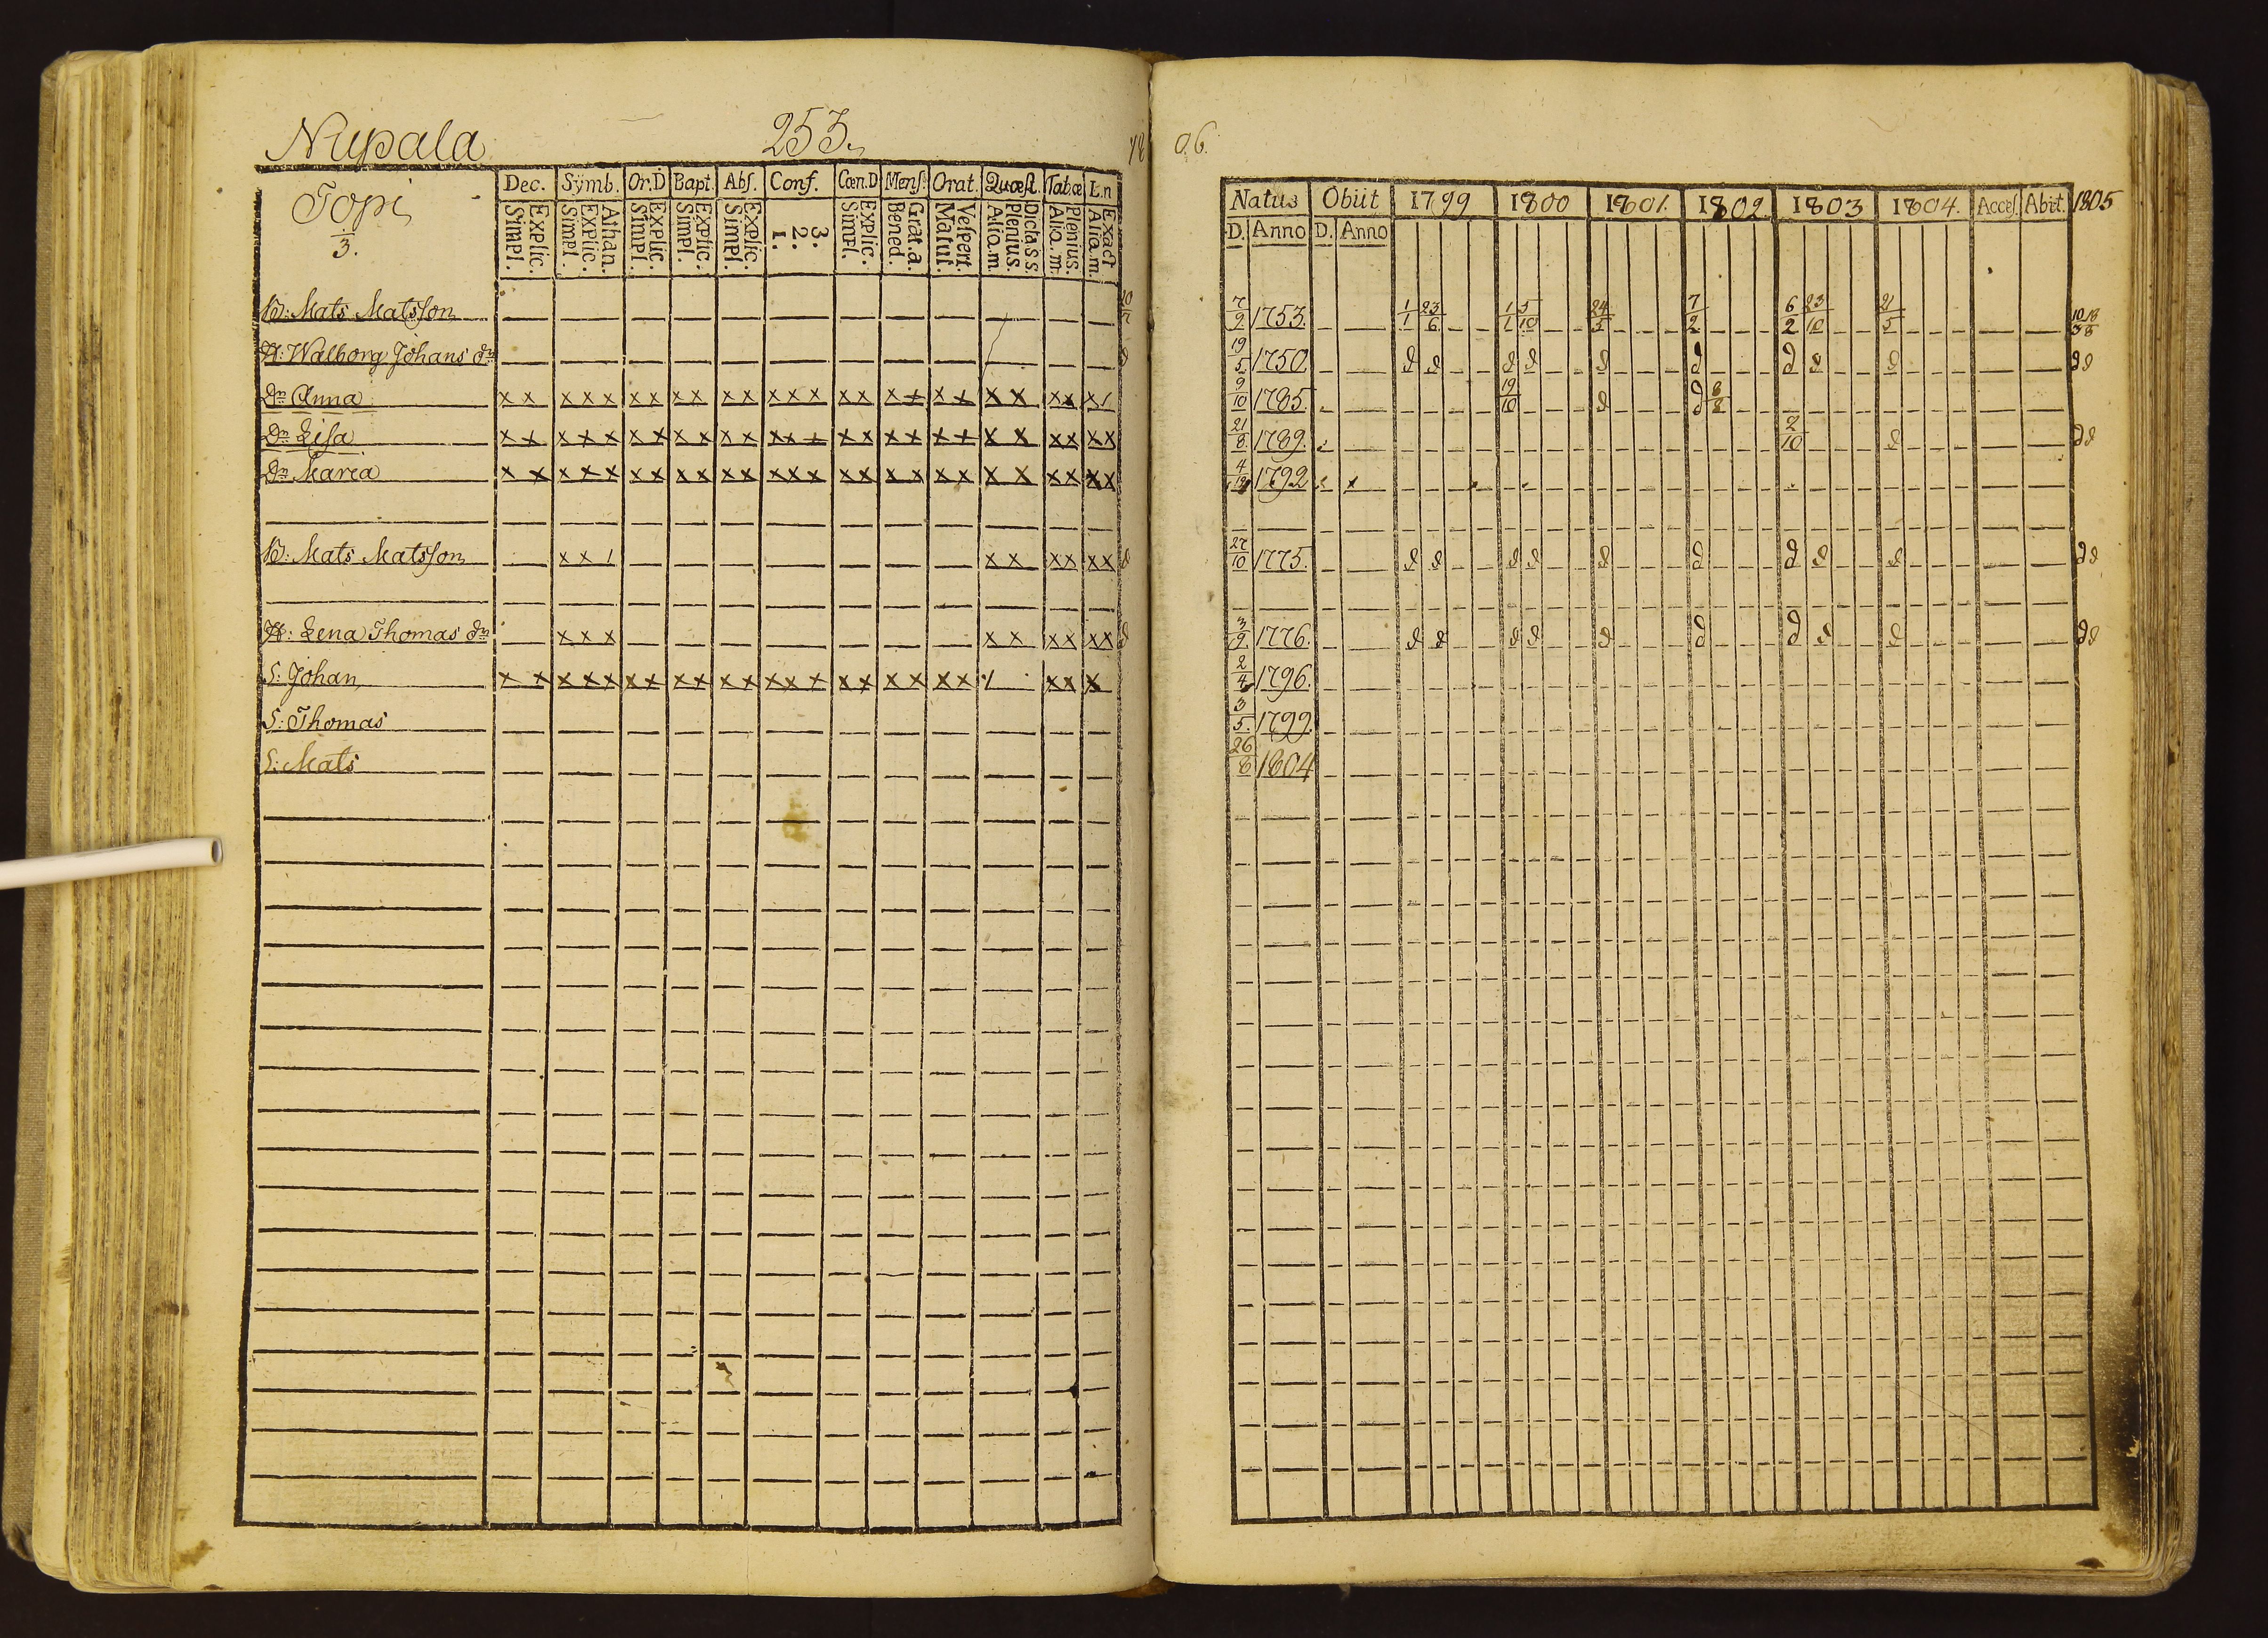 Nupala 253. 18 06.
Topi
3.
Dec. Symb. Or.D Bapt. Abſ. Conf. Cœn.D Menſ. Orat. Quæſt. Tabæ L.n
Explic. Simpl. Athan. Explic. Simpl. Explic. Simpl. Explic. Simpl. Explic. Simpl. 3. 2. 1. Explic. Simpl. Grat.a. Bened. Veſpert. Matut. Dicta S.S. Plenius. Alia.m. Plenius. Alia.m. Exact Alia.m.
Natus Obiit 1799 1800 1801. 1802 1803 1804. Acceſ. Abit. 1805
D. Anno D. Anno
B: Mats Matsſon 7/9 1753. 1/1 23/6 1/1 5/10 24/5 7/2 6/2 23/10 21/5 10/3 18/8
H: Walborg Johans dr 19/5 1750. d d d d d d d d d d d
Dr Anna x x x x x x x x x x x x x x x x x x x x x x x x x x 9/10 1785. 19/10 d d 8/8
Dr Liſa x x x x x x x x x x x x x x x x x x x x x x x x x x 21/8 1789. 2/10 d d d
Dr Maria x x x x x x x x x x x x x x x x x x x x x x x x x x 4/12 1792
B: Mats Matsſon x x / x x x x x x 27/10 1775. d d d d d d d d d d d
H: Lena Thomas dr x x x x x x x x x 3/9 1776. d d d d d d d d d d d
S: Johan x x x x x x x x x x x x x x x x x x x x / x x x 2/4 1796.
S: Thomas 3/5 1799.
S: Mats 26/8 1804